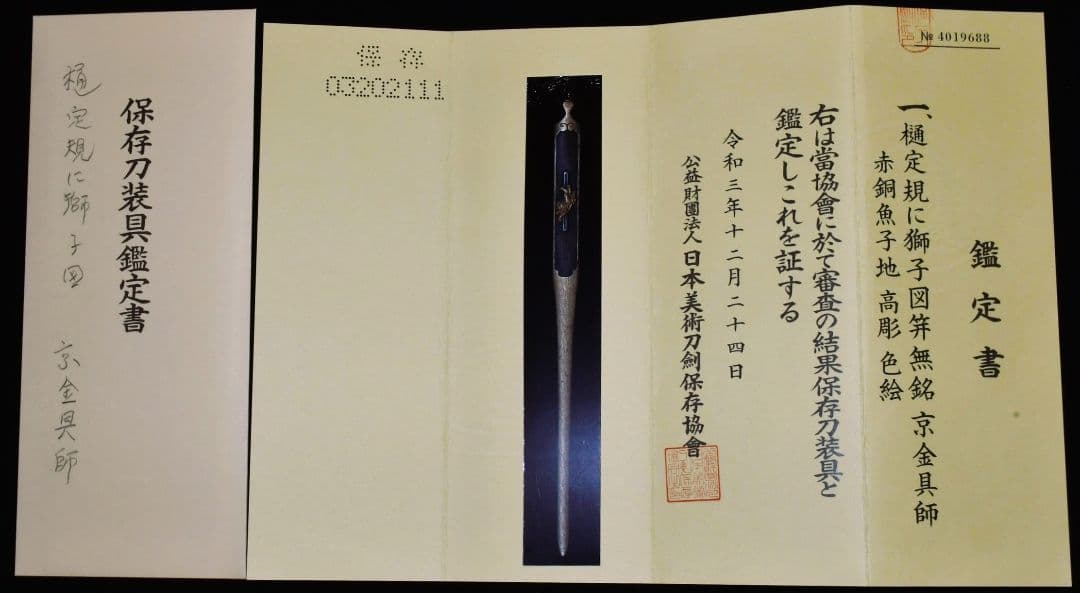 № 4019688
鑑定書
一、樋定規に獅子図笄 無銘 京金具師
赤銅魚子地 高彫 色絵
右は當協會に於て審査の結果保存刀装具と
鑑定しこれを証する
令和三年十二月二十四日
公益財團法人 日本美術刀劍保存協會
保存
03202111
保存刀装具鑑定書
樋定規に獅子図 京金具師